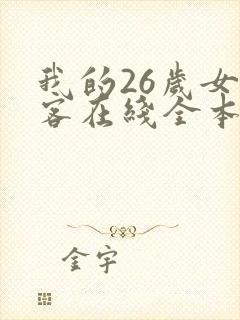 我的26歲女
客在綫全本
金宇